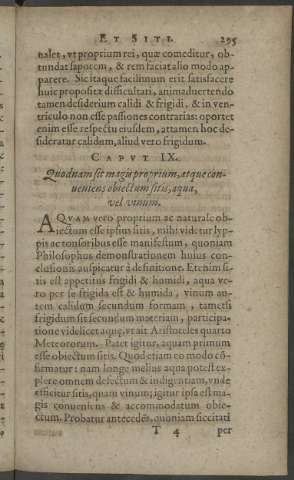 ET SITI. 295
nalet, vt proprium rei, quæ comeditur, ob-
tundat saporem, & rem faciat alio modo ap-
parere. Sic itaque facillimum erit satisfacere
huic propositæ difficultati, animaduertendo
tamen desiderium calidi & frigidi, & in ven-
triculo non esse passiones contrarias: oportet
enim esse respectu eiusdem, attamen hoc de-
sideratur calidum, aliud vero frigidum.
CAPVT IX.
Quodnam sit magis proprium, atque con-
ueniens obiectum sitis, aqua,
vel vinum.
AQVAM vero proprium ac naturale ob-
iectum esse ipsius sitis, mihi videtur lyp-
pis ac tonsoribus esse manifestum, quoniam
Philosophus demonstrationem huius con-
clusionis auspicatur à definitione. Etenim si-
tis est appetitus frigidi & humidi, aqua ve-
ro per se frigida est & humida, vinum au-
tem calidum secundum formam, tametsi
frigidum sit secundum materiam, participa-
tione videlicet aquę, vt ait Aristoteles quarto
Meteororum. Patet igitur, aquam primum
esse obiectum sitis. Quod etiam eo modo cõ-
firmatur: nam longe melius aqua potest ex-
plere omnem defectum & indigentiam, vnde
efficitur sitis, quam vinum; igitur ipsa est ma-
gis conueniens & accommodatum obie-
ctum. Probatur antecedés, quoniam siccitati
T 4 per